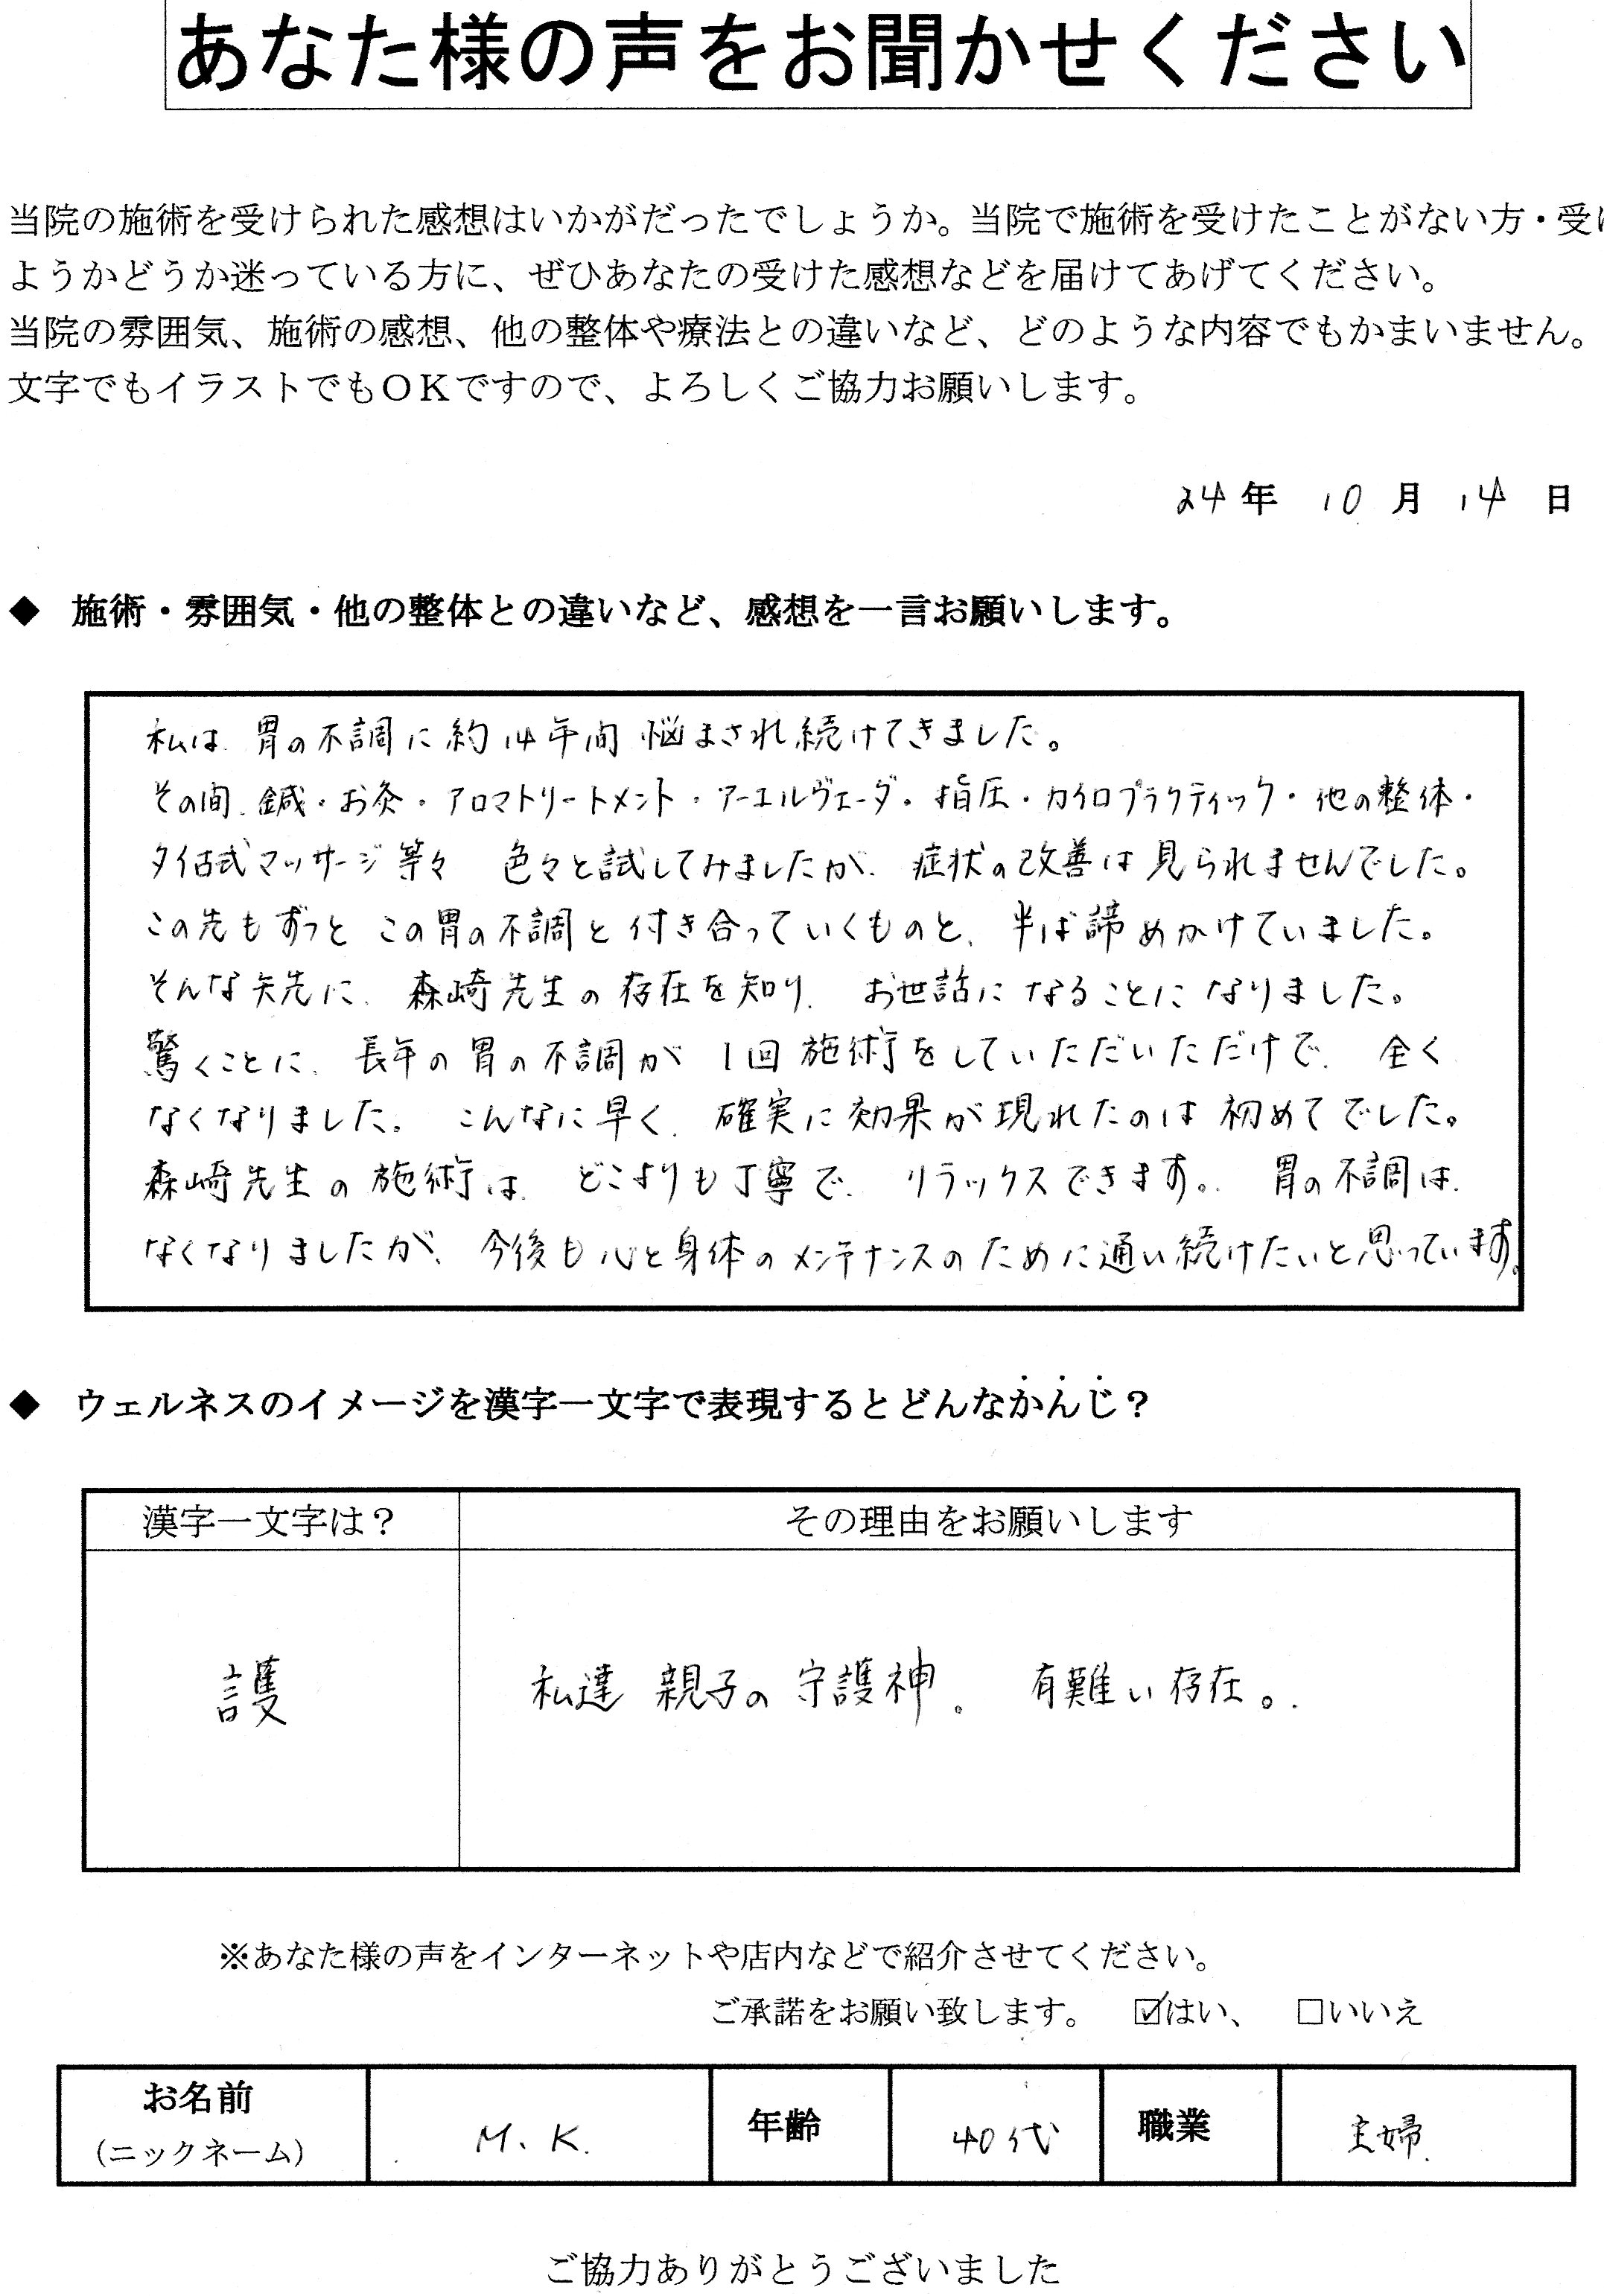 あなた様の声をお聞かせください
当院の施術を受けられた感想はいかがだったでしょうか。当院で施術を受けたことがない方・受け
ようかどうか迷っている方に、ぜひあなたの受けた感想などを届けてあげてください。
当院の雰囲気、施術の感想、他の整体や療法との違いなど、どのような内容でもかまいません。
文字でもイラストでもOKですので、よろしくご協力お願いします。
24年 10月 14日
◆ 施術・雰囲気・他の整体との違いなど、感想を一言お願いします。
私は、胃の不調に約14年間悩まされ続けてきました。
その間、鍼・お灸・アロマトリートメント・アーユルヴェーダ・指圧・カイロプラクティック・他の整体・
タイ古式マッサージ等々 色々と試してみましたが、症状の改善は見られませんでした。
この先もずっとこの胃の不調と付き合っていくものと、半ば諦めかけていました。
そんな矢先に、森崎先生の存在を知り、お世話になることになりました。
驚くことに、長年の胃の不調が1回施術をしていただいただけで、全く
なくなりました。こんなに早く、確実に効果が現れたのは初めてでした。
森崎先生の施術は、どこよりも丁寧で、リラックスできます。胃の不調は、
なくなりましたが、今後も心と身体のメンテナンスのために通い続けたいと思っています。
◆ ウェルネスのイメージを漢字一文字で表現するとどんなかんじ?
漢字一文字は? その理由をお願いします
護 私達親子の守護神。有難い存在。
※あなた様の声をインターネットや店内などで紹介させてください。
ご承諾をお願い致します。 ☑はい、 □いいえ
お名前 M、K. 年齢 40代 職業 主婦
(ニックネーム)
ご協力ありがとうございました